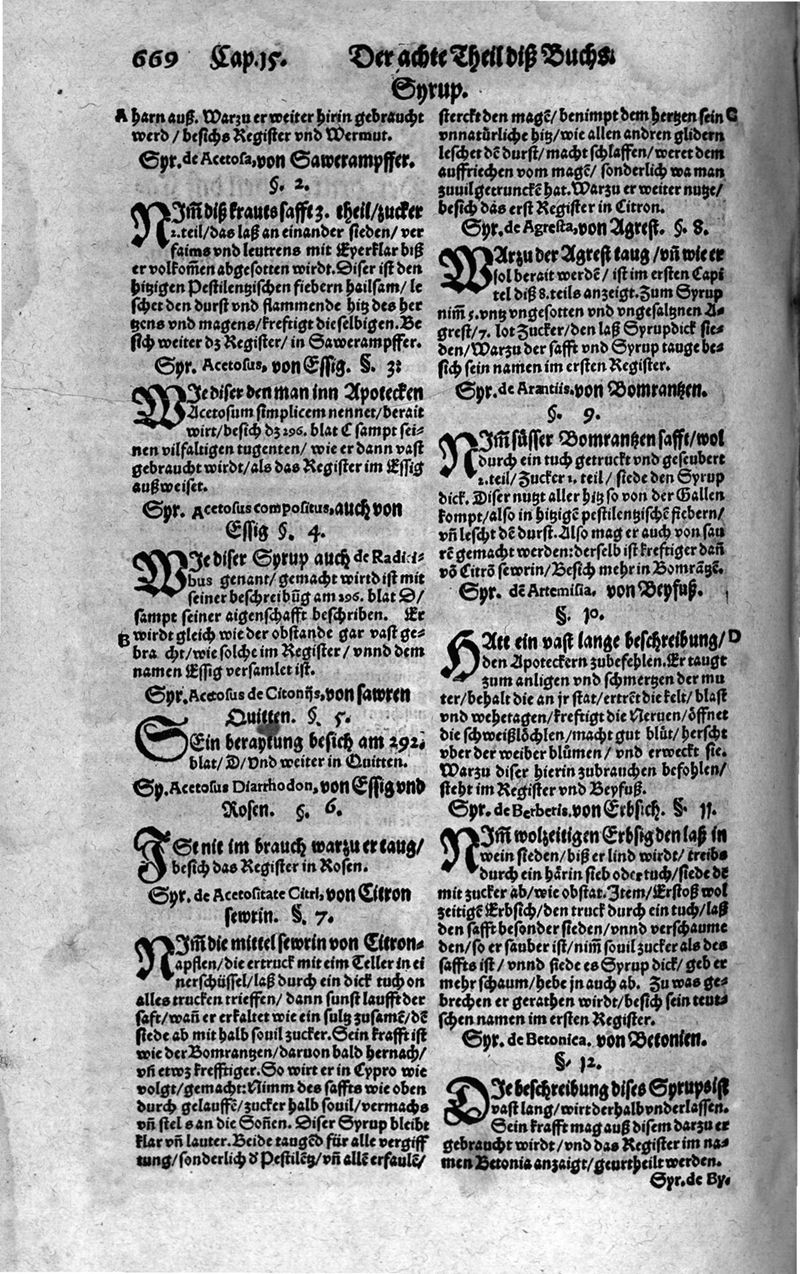 669 Cap.15. Der achte Theil diß Buchs.
Syrup.
A harn auß. Warzu er weiter hirin gebraucht
werd / besichs Register vnd Wermut.
Syr. de Acetosa, von Sawerampffer.
§. 2.
NIm̄ diß krauts safft 3. theil / zucker
2. teil / das laß an einander sieden / ver
faims vnd leutrens mit Eyerklar biß
er volkom̄en abgesotten wirdt. Diser ist den
hitzigen Pestilentzischen fiebern hailsam / le
schet den durst vnd flammende hitz des her
tzens vnd magens / kreftigt dieselbigen. Be
sich weiter dz Register / in Sawerampffer.
Syr. Acetosus, von Essig. §. 3.
WIe diser den man inn Apotecken
Acetosum simplicem nennet / berait
wirt / besich dz 296. blat C sampt sei-
nen vilfaltigen tugenten / wie er dann vast
gebraucht wirdt / als das Register im Essig
außweiset.
Syr. Acetosus compositus, auch von
Essig §. 4.
WIe diser Syrup auch de Radici-
bus genant / gemacht wirtd ist mit
seiner beschreibūg am 296. blat D /
sampt seiner aigenschafft beschriben. Er
B wirdt gleich wie der obstande gar vast ge-
bra cht / wie solche im Register / vnnd dem
namen Essig versamlet ist.
Syr. Acetosus de Citonijs, von sawren
Quitten. §. 5.
SEin beraytung besich am 292.
blat / D / Vnd weiter in Quitten.
Sy. Acetosus Diarrhodon, von Essig vnd
Rosen. §. 6.
ISt nit im brauch warzu er taug /
besich das Register in Rosen.
Syr. de Acetositate Citri, von Citron
sewrin. §. 7.
NIm̄ die mittel sewrin von Citron-
apflen / die ertruck mit eim Teller in ei
ner schüssel / laß durch ein dick tuch on
alles trucken trieffen / dann sunst laufft der
saft / wañ er erkaltet wie ein sultz zusamē / dē
siede ab mit halb souil zucker. Sein krafft ist
wie der Bomrantzen / daruon bald hernach /
vñ etwz krefftiger. So wirt er in Cypro wie
volgt / gemacht: Nimm des saffts wie oben
durch gelauffē / zucker halb souil / vermachs
vñ stel s an die Soñen. Diser Syrup bleibt
klar vñ lauter. Beide taugēd für alle vergiff
tung / sonderlich d' Pestilētz / vñ allē erfaulē /
sterckt den magē / benimpt dem hertzen sein C
vnnatürliche hitz / wie allen andren glidern
leschet dē durst / macht schlaffen / weret dem
auffriechen vom magē / sonderlich wa man
zuuil getrunckē hat. Warzu er weiter nutze /
besich das erst Register in Citron.
Syr. de Agresta, von Agrest. §. 8.
WArzu der Agrest taug / vñ wie er
sol berait werdē / ist im ersten Capi
tel diß 8. teils anzeigt. Zum Syrup
nim̄ 5. vntz vngesotten vnd vngesaltznen A-
grest / 7. lot Zucker / den laß Syrupdick sie-
den / Warzu der safft vnd Syrup tauge be-
sich sein namen im ersten Register.
Syr. de Arantiis, von Bomrantzen.
§. 9.
NIm̄ süsser Bomrantzen safft / wol
durch ein tuch getruckt vnd geseubert
2. teil / Zucker 1. teil / siede den Syrup
dick. Diser nutzt aller hitz so von der Gallen
kompt / also in hitzigē pestilentzischē fiebern /
vñ lescht dē durst. Also mag er auch von sau
rē gemacht werden: derselb ist kreftiger dañ
vō Citrō sewrin / Besich mehr in Bomrātzē.
Syr. dē Artemisia, von Beyfuß.
§. 10.
HAtt ein vast lange beschreibung / D
den Apoteckern zubefehlen. Er taugt
zum anligen vnd schmertzen der mu
ter / behalt die an jr stat / ertrēt die kelt / blast
vnd wehetagen / kreftigt die Neruen / öffnet
die schweißlöchlen / macht gut blůt / herscht
vber der weiber blůmen / vnd erweckt sie.
Warzu diser hierin zubrauchen befohlen /
steht im Register vnd Beyfuß.
Syr. de Berberis, von Erbsich. §. 11.
NIm̄ wolzeitigen Erbsig den laß in
wein sieden / biß er lind wirdt / treibs
durch ein hārin sieb oder tuch / siede dē
mit zucker ab / wie obstat. Item / Erstoß wol
zeitigē Erbsich / den truck durch ein tuch / laß
den safft besonder sieden / vnnd verschaume
den / so er sauber ist / nim̄ souil zucker als des
saffts ist / vnnd siede es Syrup dick / geb er
mehr schaum / hebe jn auch ab. Zu was ge-
brechen er gerathen wirdt / besich sein teut-
schen namen im ersten Register.
Syr. de Betonica. von Betonien.
§. 12.
DIe beschreibung dises Syrups ist
vast lang / wirt derhalb vnderlassen.
Sein krafft mag auß disem darzu er
gebraucht wirdt / vnd das Register im na-
men Betonia anzaigt / geurtheilt werden.
Syr. de By.